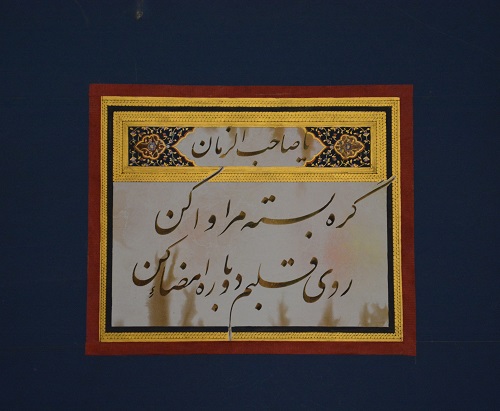 یا صاحب الزمان
گره بسته مرا وا کن
روی قلبم دوباره امضاء کن